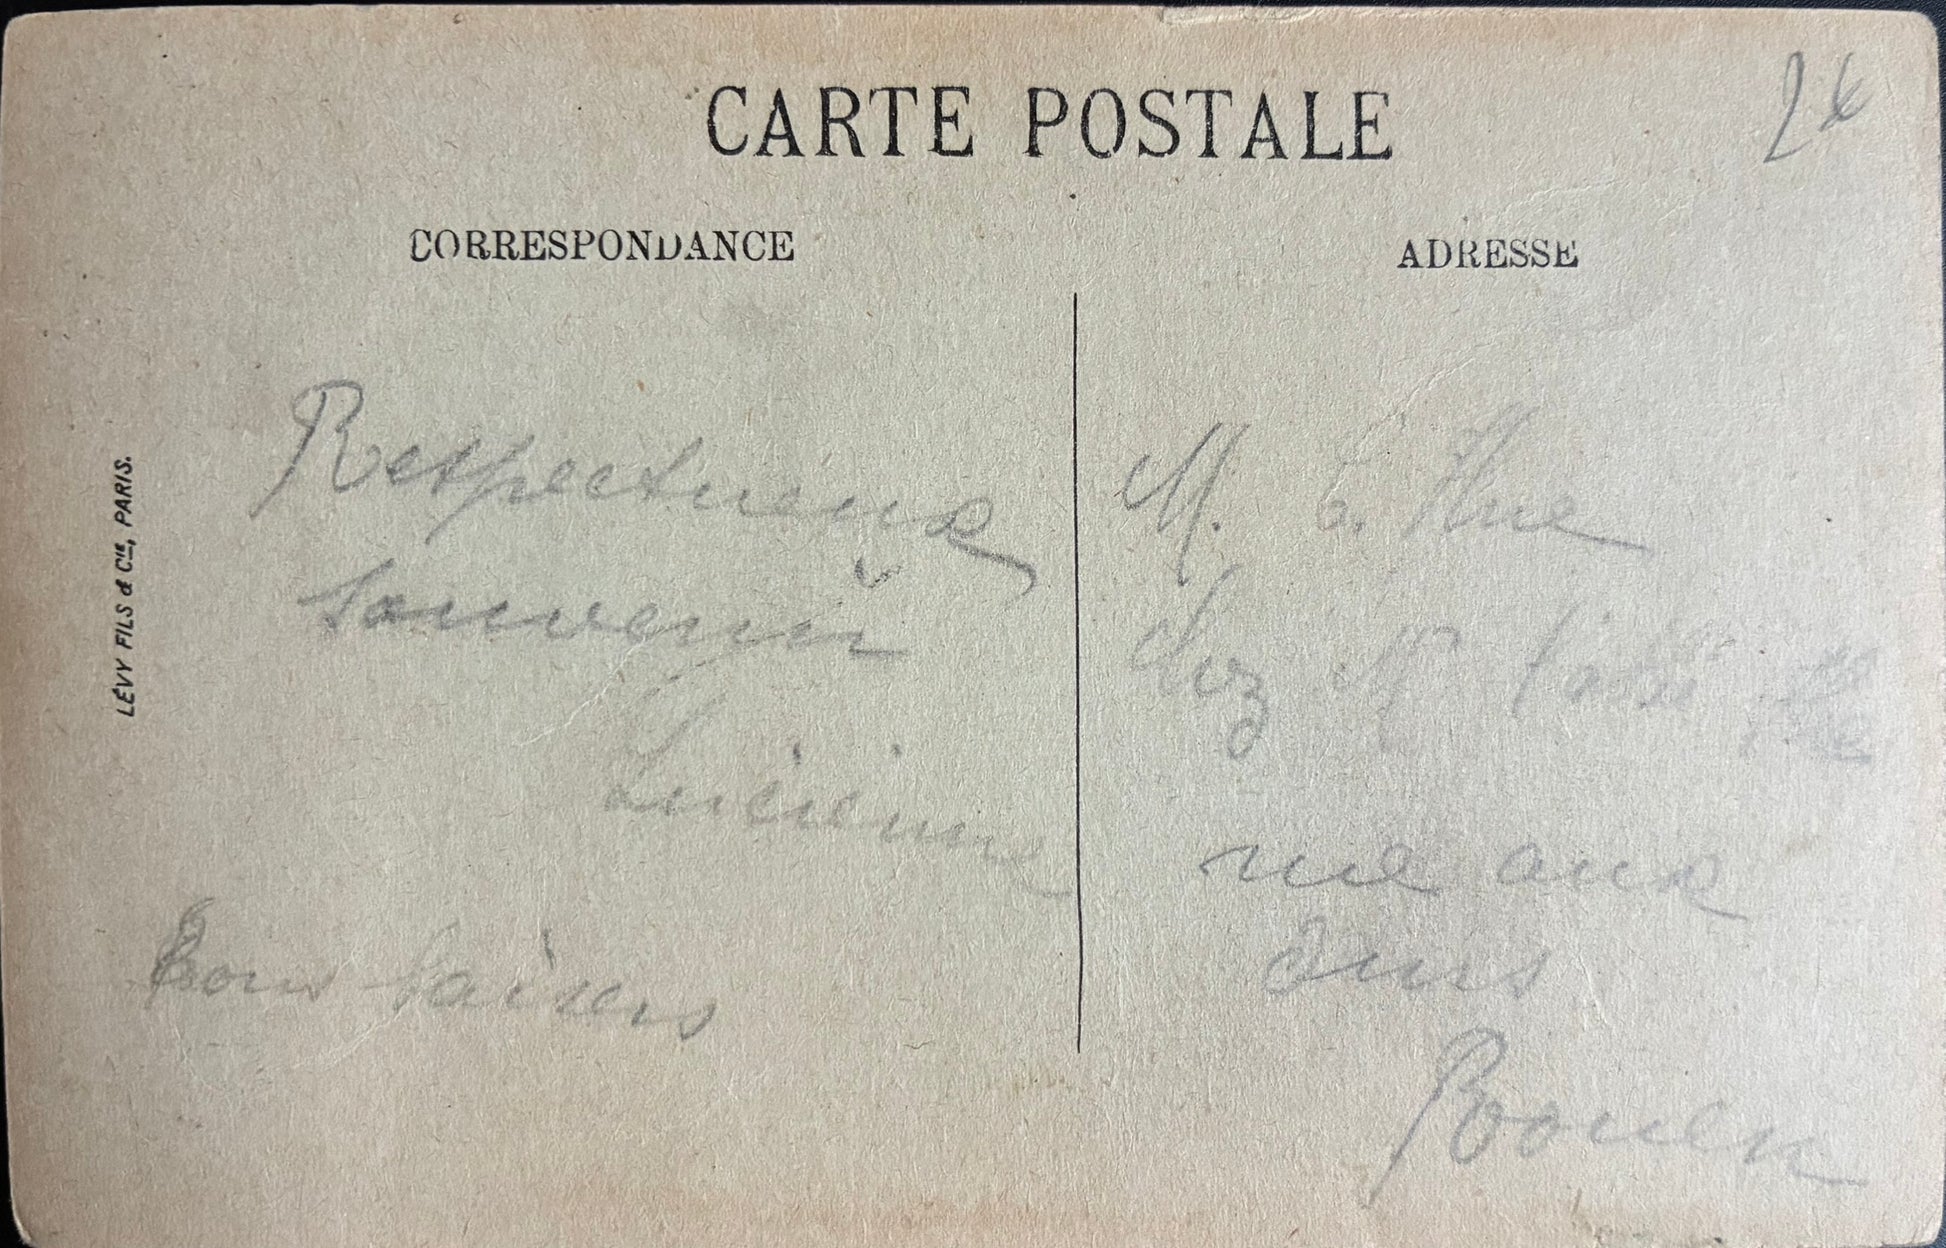 CARTE POSTALE
2€
CORRESPONDANCE
ADRESSE
LÉVY FILS & Cie, PARIS.
Respectueux
souvenir
Lucienne
Bons baisers
M. Hue
chez Mr
rue aux
Ours
Rouen